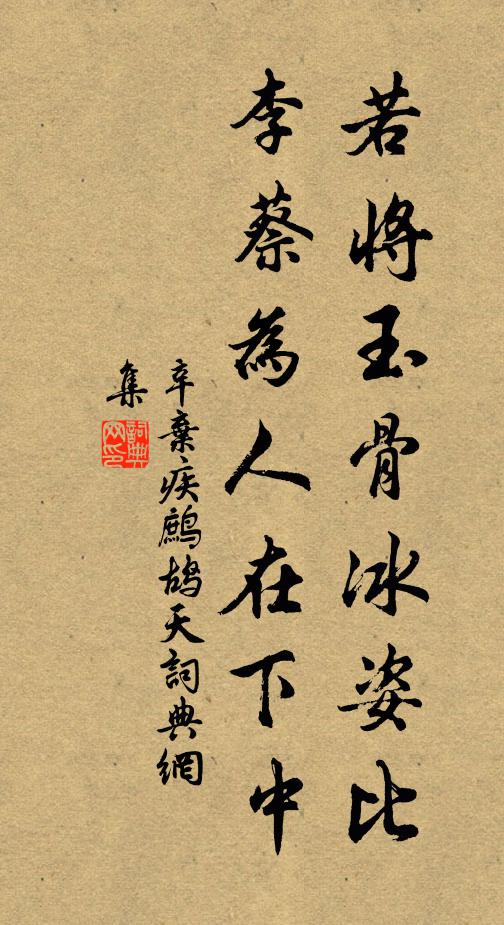 若將玉骨冰姿比
李蔡為人在下中
辛棄疾鷓鴣天詞典網
集
詞典
网印